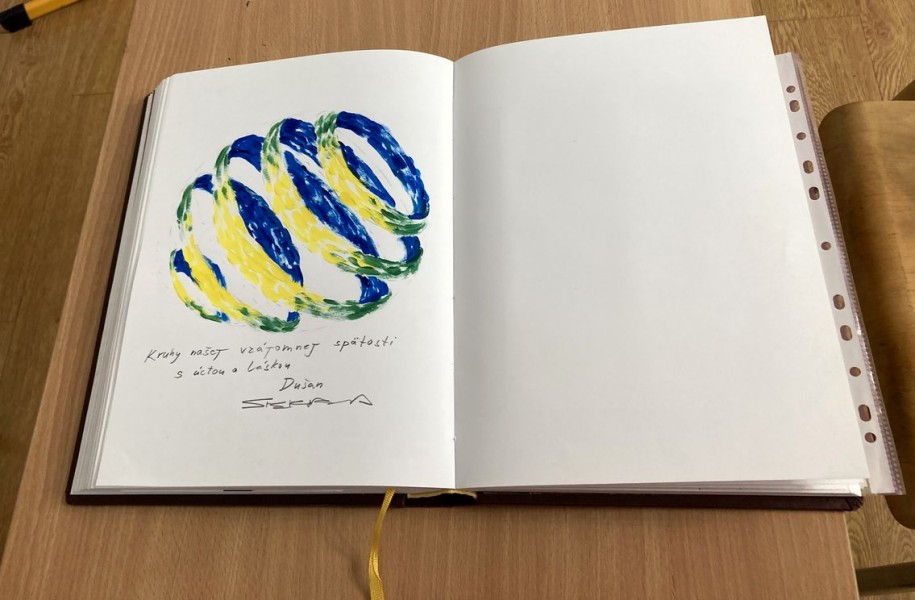 Kruhy našej vzájomnej spätosti
s úctou a láskou
Dušan